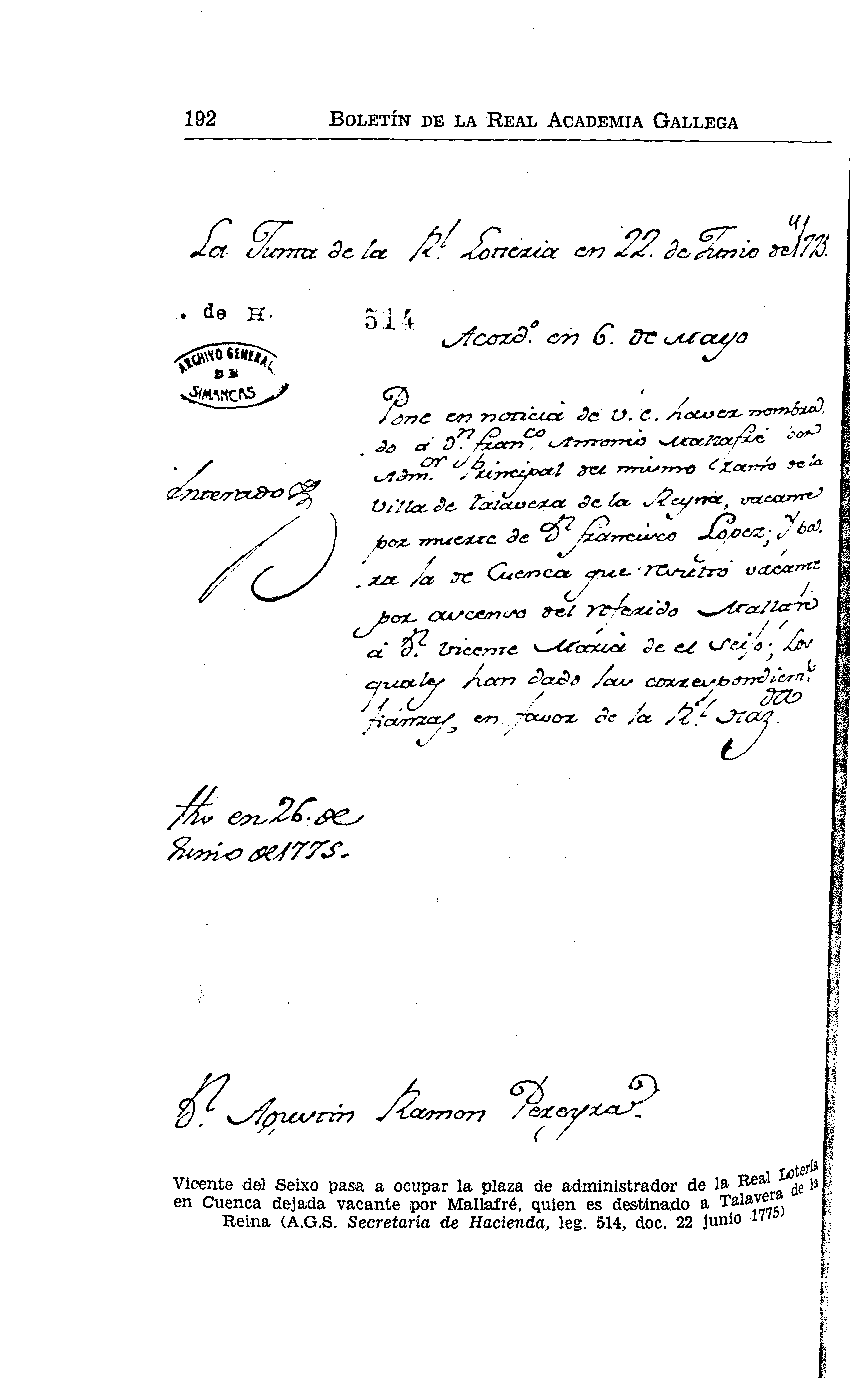 192 BOLETÍN DE LA REAL ACADEMIA GALLEGA
La Junta de la Rl. Loteria en 22. de Junio de 1775.
. de H. 514
Acordo. en 6. de Mayo
ARCHIVO GENERAL
DE
SIMANCAS
Pone en noticia de V. E. haver nombra
do á Dn. Franco. Antonio Mallafré por
Admor. Principal del mismo Ramo de la
Enterado
Villa de Talavera de la Reyna, vacante
por muerte de Dn. Francisco Lopez; y pa
ra la de Cuenca que resultó vacante
por ascenso del referido Mallafré
á Dn. Vicente María de el Seijo; los
quales han dado las correspondientes
fianzas, en favor de la Rl. Hazda.
fho en 26. de
Junio de 1775.
Dn. Agustin Ramon Pereyra.
Vicente del Seixo pasa a ocupar la plaza de administrador de la Real Lotería
en Cuenca dejada vacante por Mallafré, quien es destinado a Talavera de la
Reina (A.G.S. Secretaría de Hacienda, leg. 514, doc. 22 junio 1775)